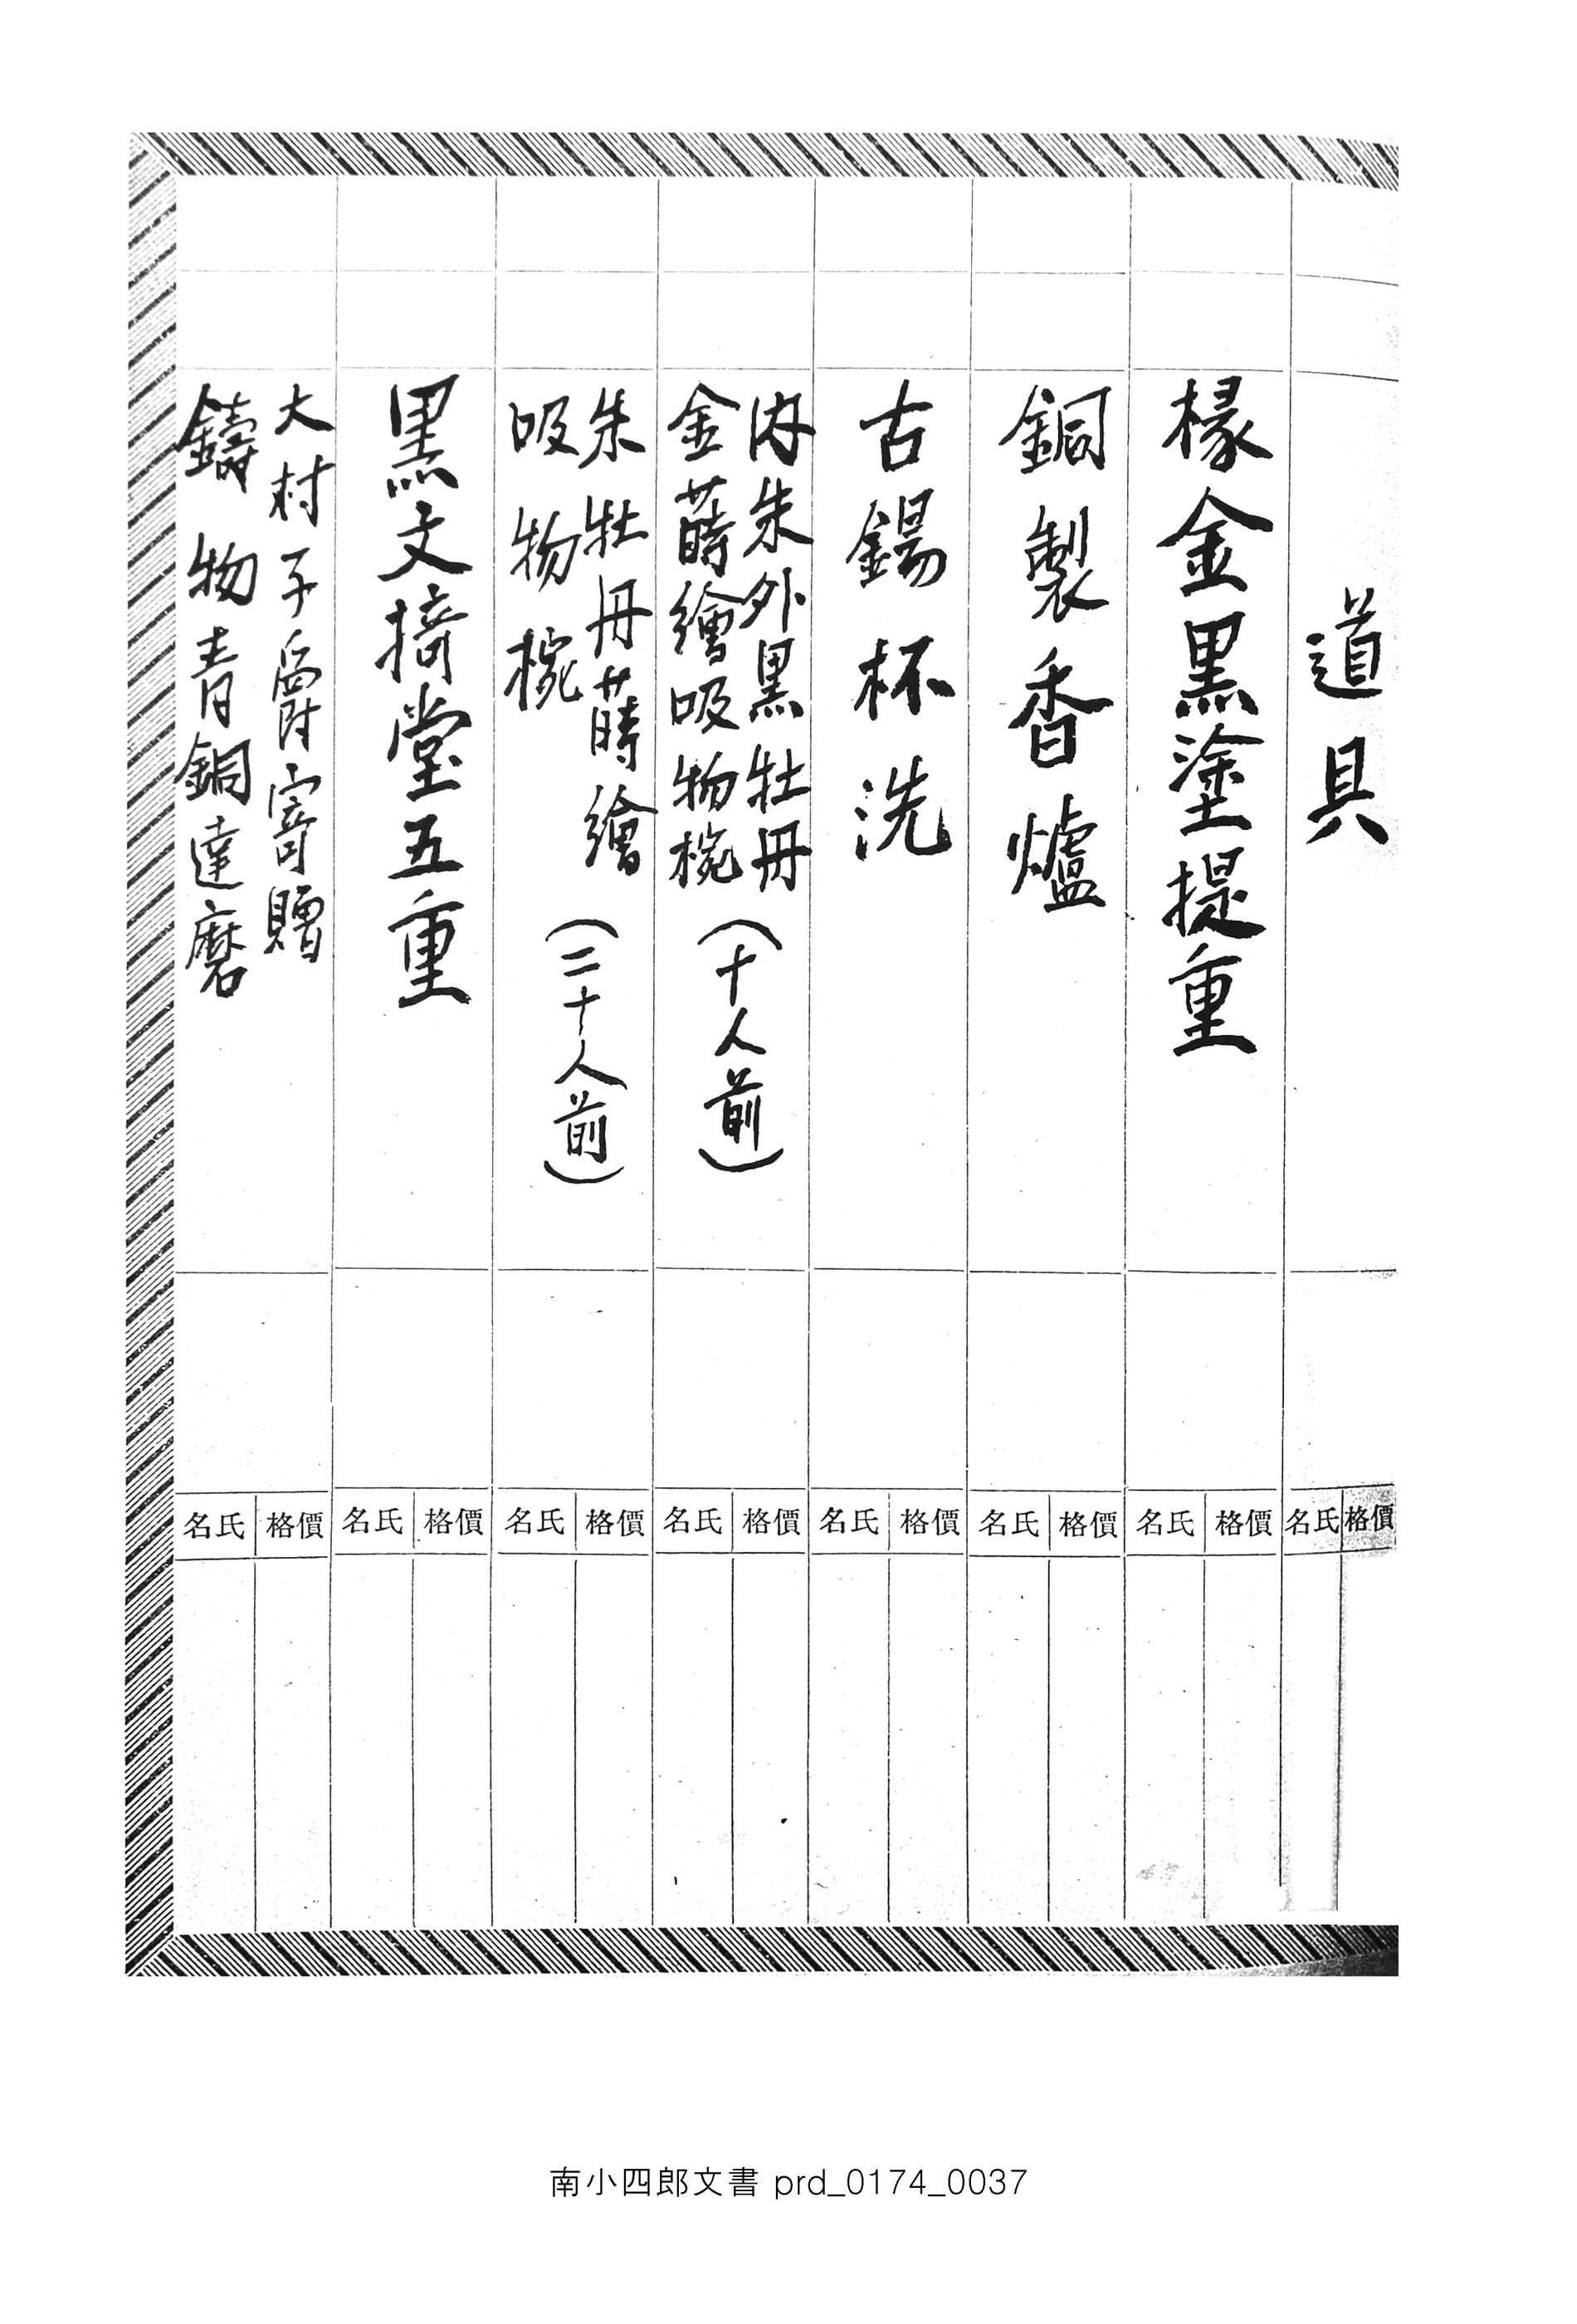 道具
椽金黒塗提重
銅製香爐
古錫杯洗
内朱外黒牡丹
金蒔繪吸物椀
(十人前)
朱牡丹蒔繪
吸物椀
(二十人前)
黒文掎堂五重
大村子爵寄贈
鑄物青銅達磨
名氏 格價 名氏 格價 名氏 格價 名氏 格價 名氏 格價 名氏 格價 名氏 格價 名氏 格價
南小四郎文書 prd_0174_0037